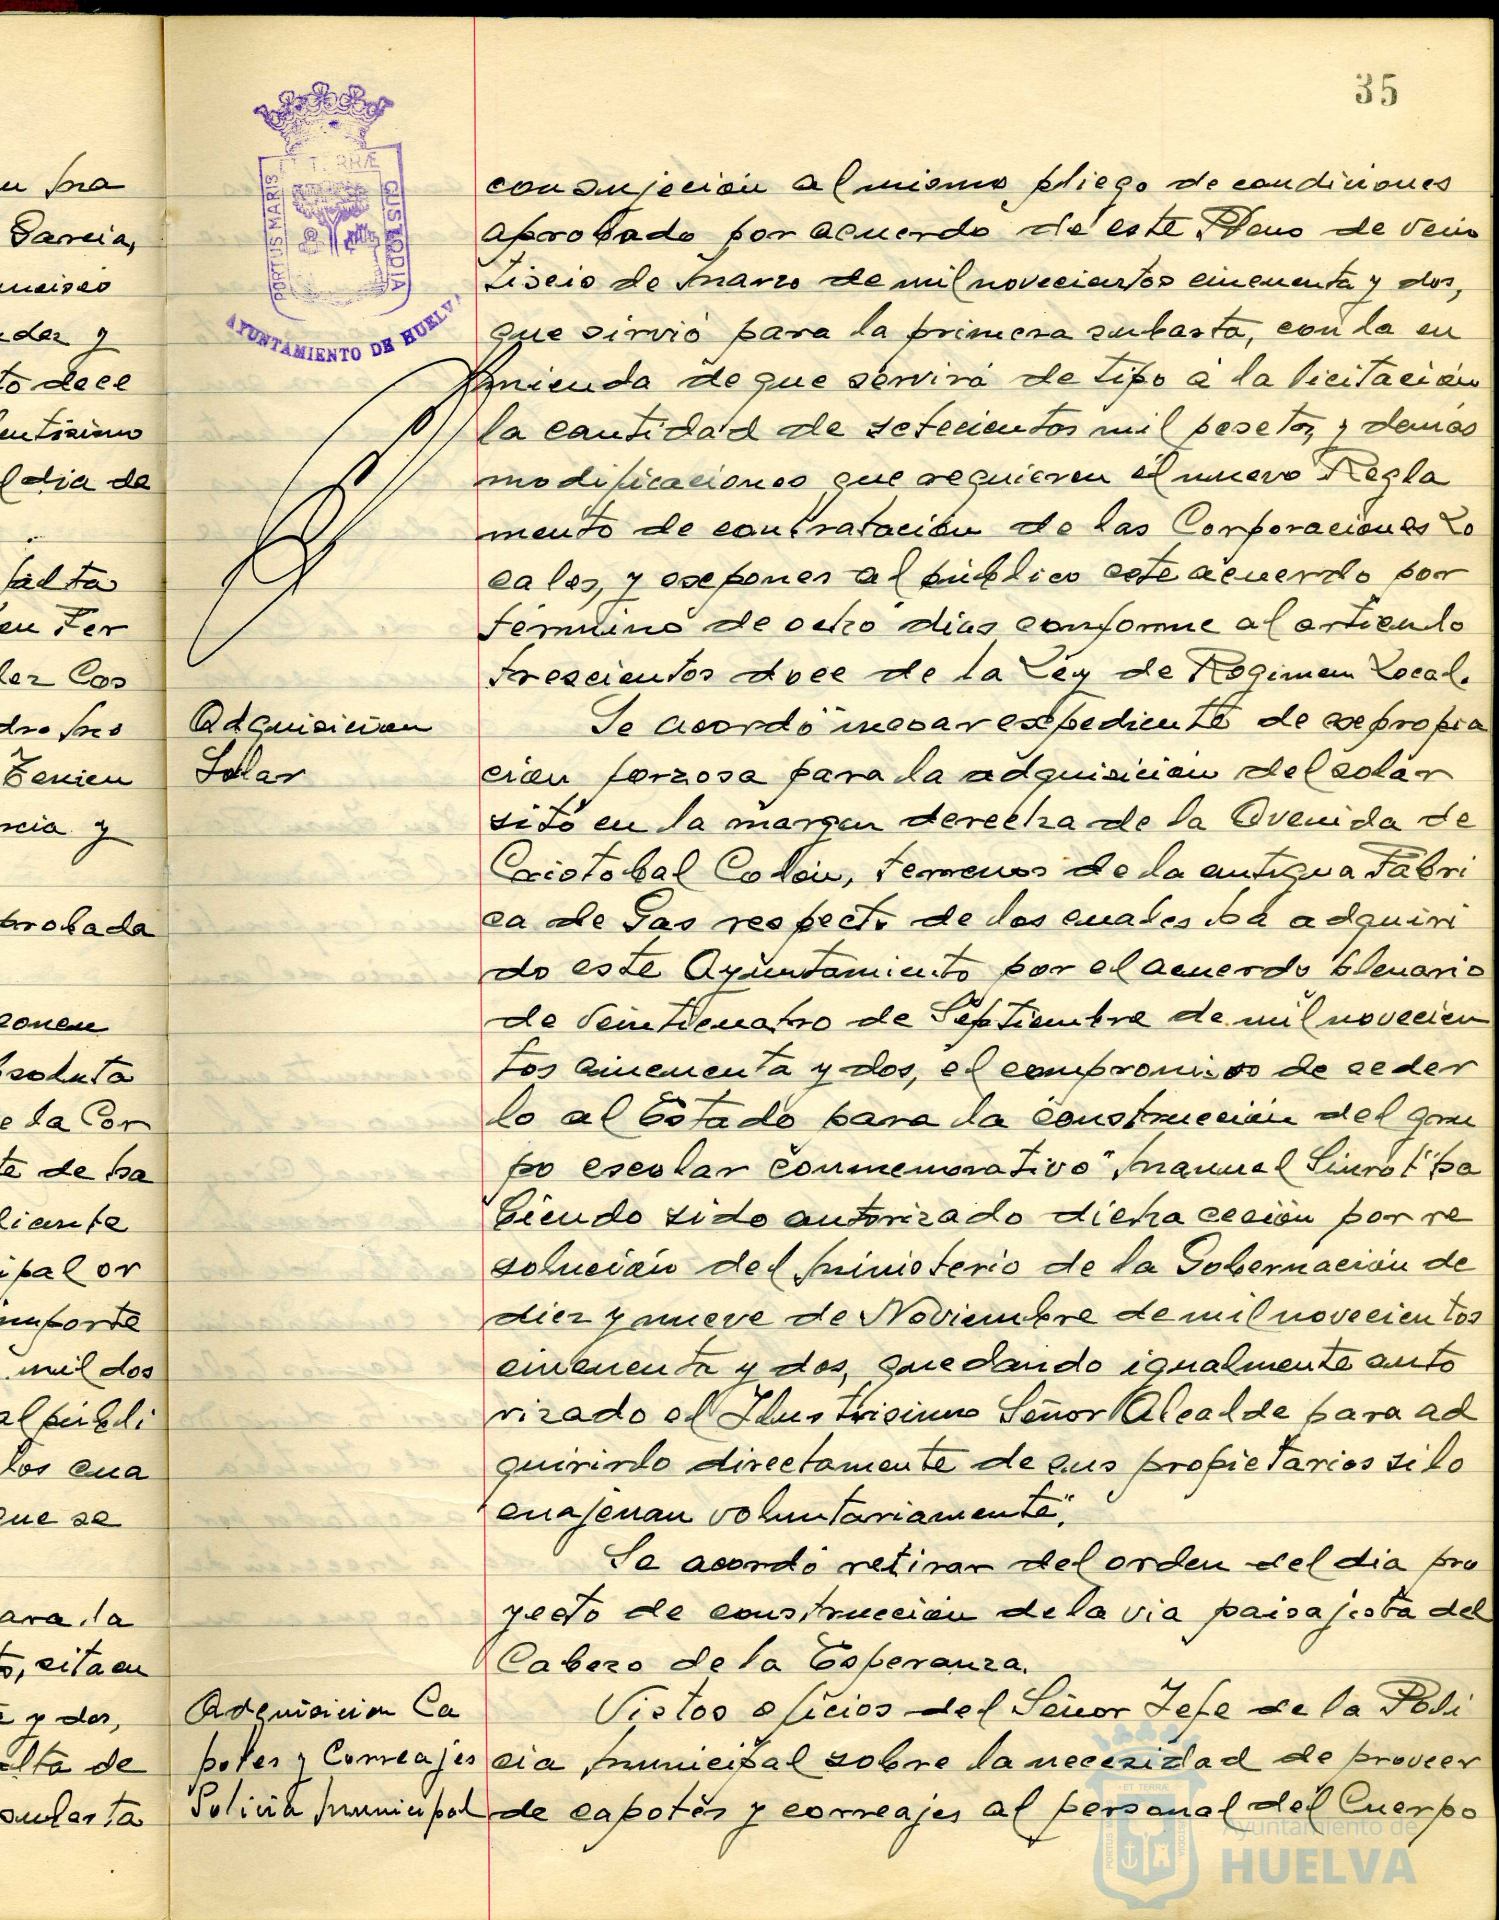 35
ET TERRÆ
PORTUS MARIS
CUSTODIA
AYUNTAMIENTO DE HUELVA
con sujeción al mismo pliego de condiciones
aprobado por acuerdo de este Pleno de vein
tiseis de Marzo de mil novecientos cincuenta y dos,
que sirvió para la primera subasta, con la en
mienda de que servirá de tipo a la licitación
la cantidad de setecientos mil pesetas, y demás
modificaciones que requieren el nuevo Regla
mento de contratación de las Corporaciones Lo
cales, y exponer al público este acuerdo por
término de ocho días conforme al artículo
trescientos doce de la Ley de Regimen Local.
Adquisicion
Solar
Se acordó "incoar expediente de expropia
cion forzosa para la adquisición del solar
sito en la margen derecha de la Avenida de
Cristobal Colón, terrenos de la antigua Fabri
ca de Gas respecto de los cuales ha adquiri
do este Ayuntamiento por el acuerdo plenario
de veinticuatro de Septiembre de mil novecien
tos cincuenta y dos, el compromiso de ceder
lo al Estado para la construcción del gru
po escolar conmemorativo "Manuel Siurot" ha
biendo sido autorizado dicha cesión por re
solución del Ministerio de la Gobernación de
diez y nueve de Noviembre de mil novecientos
cincuenta y dos, quedando igualmente auto
rizado el Ilustrisimo Señor Alcalde para ad
quirirlo directamente de sus propietarios si lo
enajenan voluntariamente".
Se acordó retirar del orden del dia pro
yecto de construcción de la via paisajista del
Cabezo de la Esperanza.
Adquisicion Ca
potes y Correajes
Policia Municipal
Vistos oficios del Señor Jefe de la Poli
cia Municipal sobre la necesidad de proveer
de capotes y correajes al personal del Cuerpo
Ayuntamiento de
HUELVA
u Ma
Garcia,
ncisco
ndez y
to dece
lentisimo
l dia de
falta
en Fer
lez Cos
dro Mo
Tenien
rcia y
probada
ponen
bsoluta
e la Cor
te de ha
diante
ipal or
importe
mil dos
al públi
los cua
que se
ara la
to, sita en
a y dos,
alta de
subasta